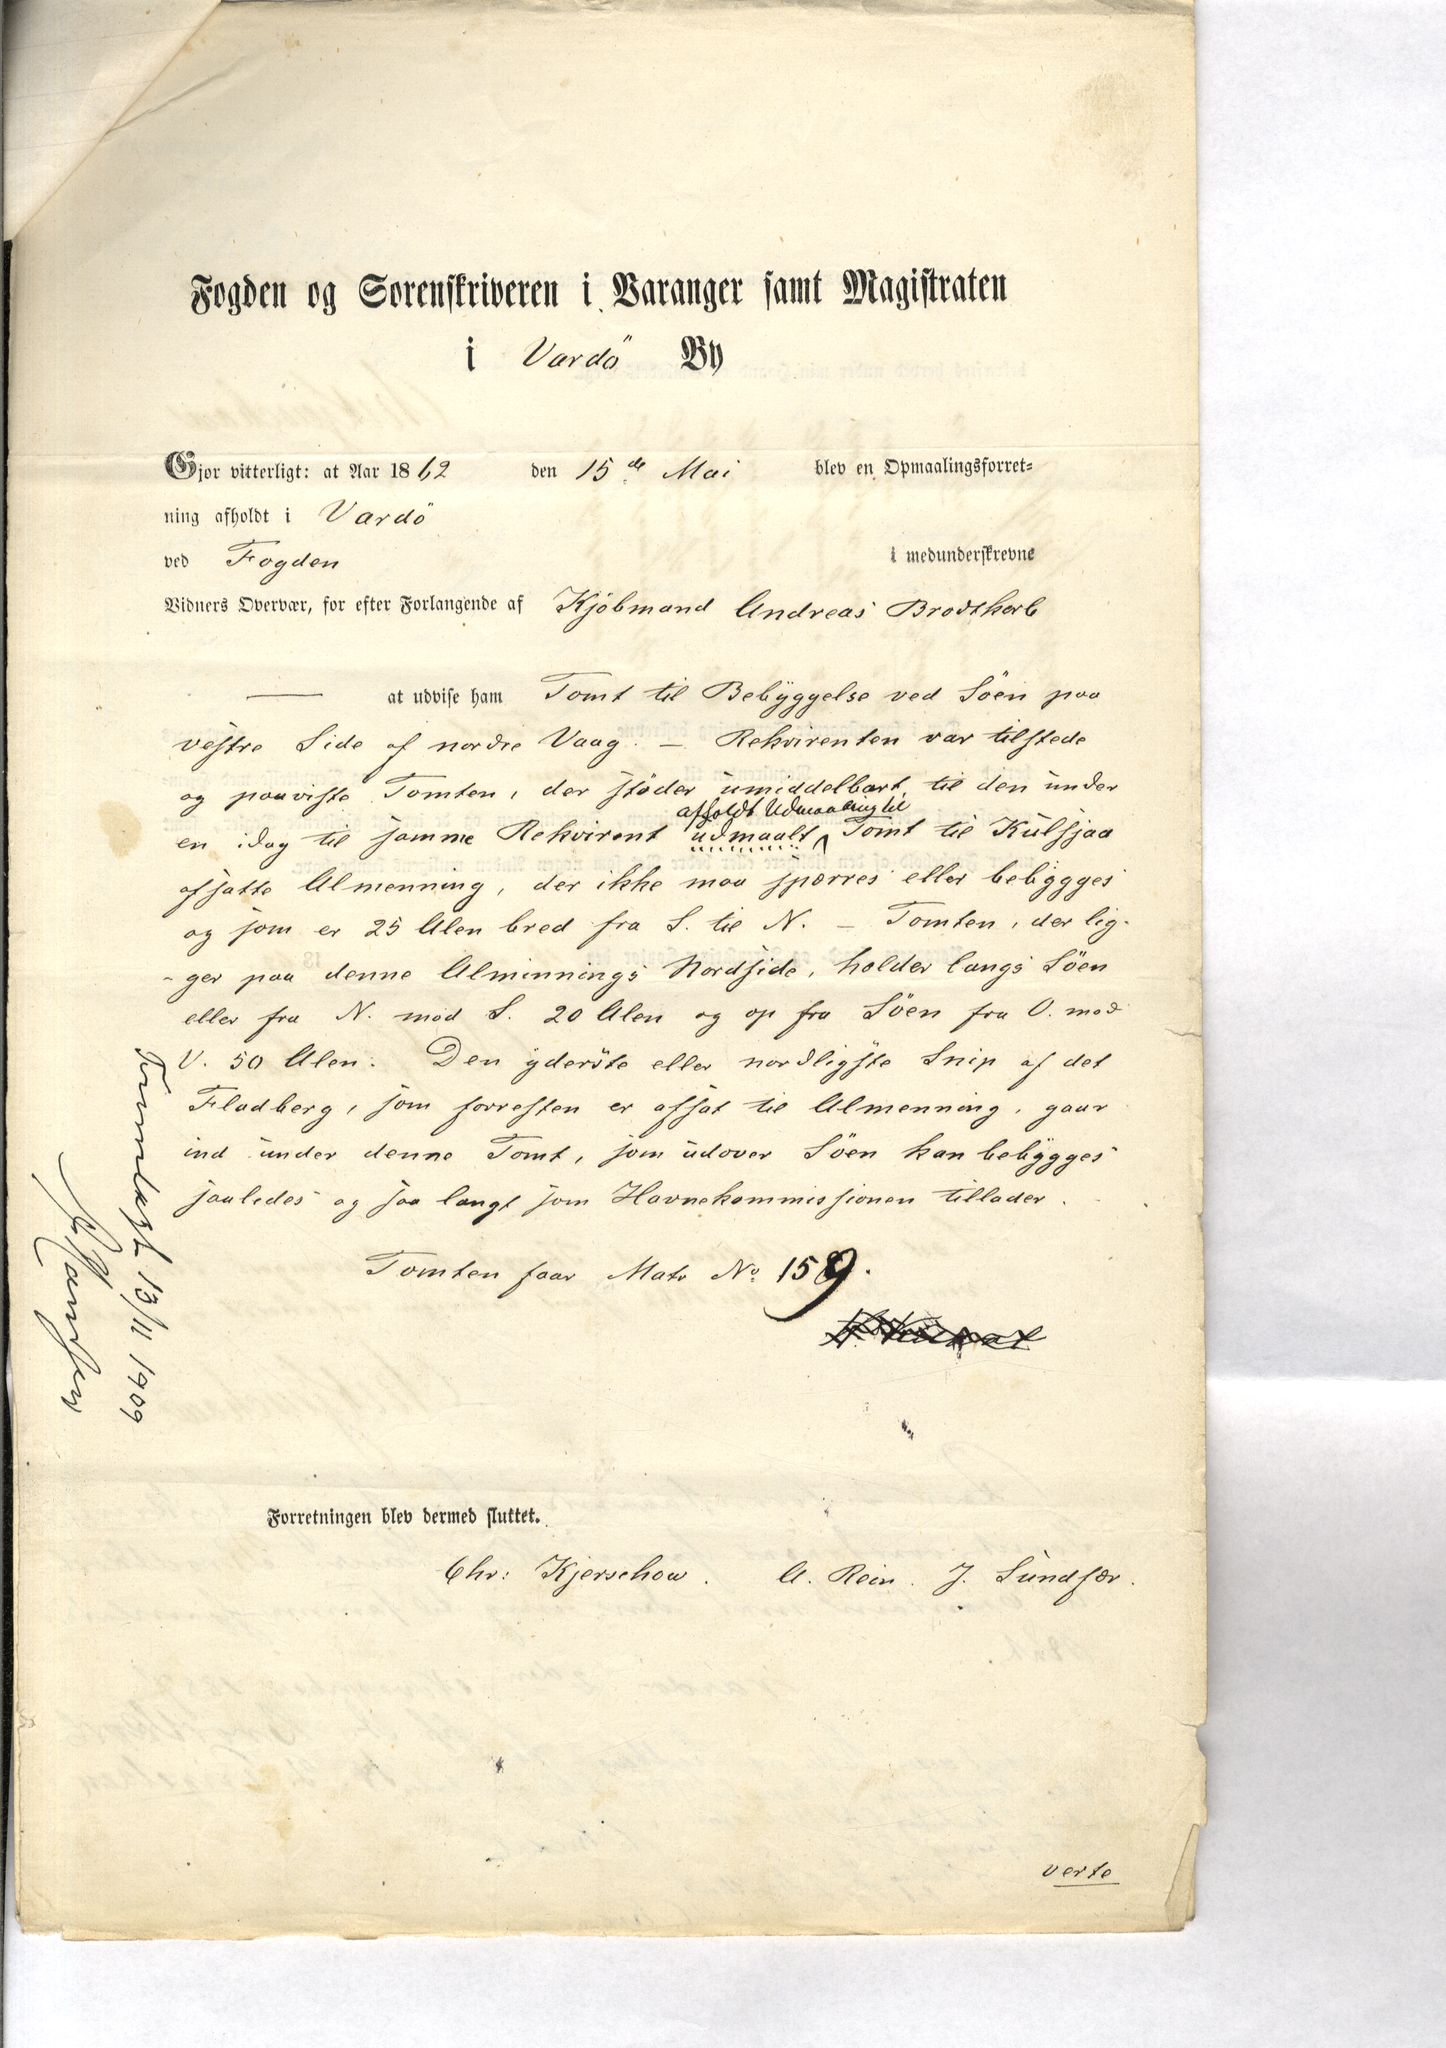 Fogden og Sorenskriveren i Varanger samt Magistraten
i Vardö By
Gjør vitterligt: at Aar 1862 den 15de Mai blev en Opmaalingsforret-
ning afholdt i Vardö
ved Fogden i medunderskrevne
Vidners Overvær, for efter Forlangende af Kjöbmand Andreas Brodtkorb
— at udvise ham Tomt til Bebyggelse ved Söen paa
vestre Side af nordre Vaag. — Rekvirenten var tilstede
og paaviste Tomten, der stöder umiddelbart til den under
afholdt Udmaaling til
en idag til samme Rekvirent udmaalt Tomt til Kulsjaa
afsatte Almenning, der ikke maa spærres eller bebygges
og som er 25 Alen bred fra S. til N. — Tomten, der lig-
-ger paa denne Alminnings Nordside, holder langs Söen
eller fra N. mod S. 20 Alen og op fra Söen fra O. mod
V. 50 Alen. Den yderste eller nordligste Snip af det
Fladberg, som forresten er afsat til Almenning, gaar
ind under denne Tomt, som udover Söen kan bebygges
saaledes og saa langt som Havnekommissionen tillader.
Tomten faar Matr No 159.
Forretningen blev dermed sluttet.
Chr: Kjerschow. A. Rein. J. Sundfær.
verte
13/11 1909
Hansen